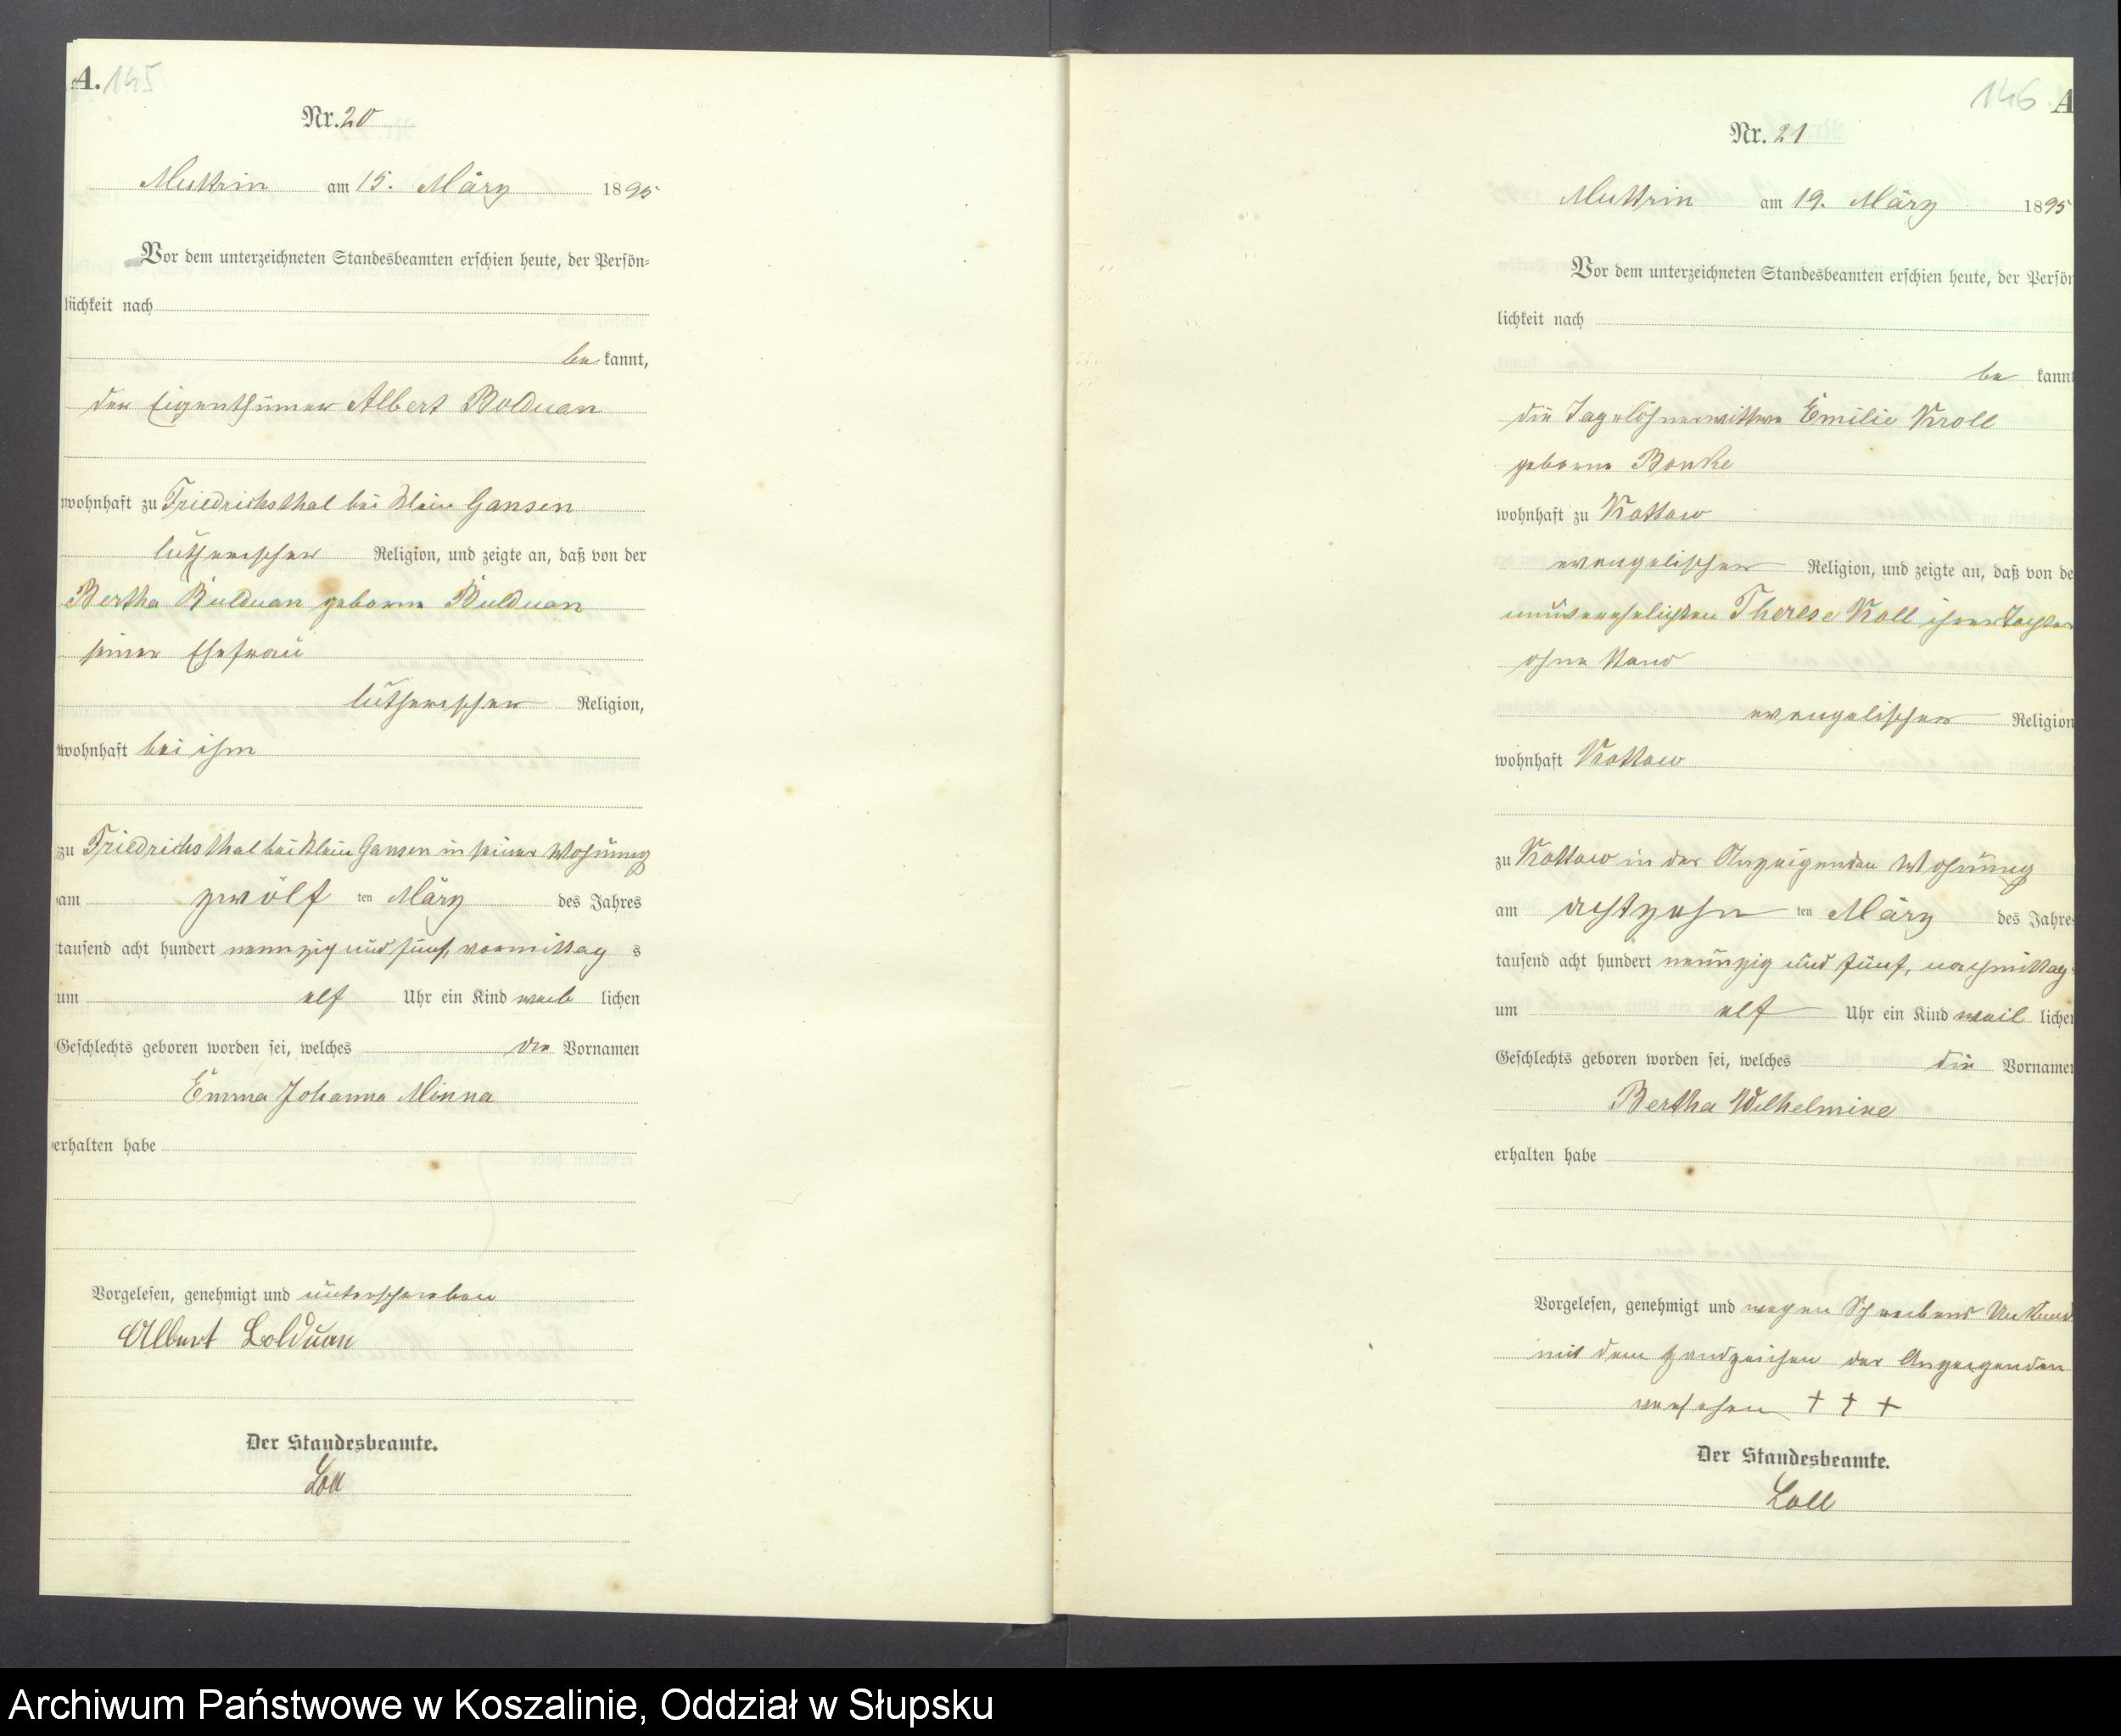 A. 145
Nr. 20
Muttrin am 15. März 1895
Vor dem unterzeichneten Standesbeamten erschien heute, der Persön-
lichkeit nach
be kannt,
der Eigenthümer Albert Bolduan
wohnhaft zu Friedrichsthal bei Klein Gansen
lutherischer Religion, und zeigte an, daß von der
Bertha Bulduan geborne Bulduan
seiner Ehefrau
lutherischer Religion,
wohnhaft bei ihm
zu Friedrichsthal bei Klein Gansen in seiner Wohnung
am zwölf ten März des Jahres
tausend acht hundert neunzig und fünf, vormittag s
um elf Uhr ein Kind weib lichen
Geschlechts geboren worden sei, welches die Vornamen
Emma Johanna Minna
erhalten habe
Vorgelesen, genehmigt und unterschrieben
Albert Bolduan
Der Standesbeamte.
Loll
146 A
Nr. 21
Muttrin am 19. März 1895
Vor dem unterzeichneten Standesbeamten erschien heute, der Persön
lichkeit nach
be kannt
die Tagelöhnerwittwe Emilie Kroll
geborne Bonke
wohnhaft zu Kottow
evangelischer Religion, und zeigte an, daß von de
unverehelichten Therese Koll ihrer Tochter
ohne Stand
evangelischer Religion
wohnhaft Kottow
zu Kottow in der Anzeigenden Wohnung
am achtzehn ten März des Jahres
tausend acht hundert neunzig und fünf, nachmittag
um elf Uhr ein Kind weib lichen
Geschlechts geboren worden sei, welches die Vornamen
Bertha Wilhelmine
erhalten habe
Vorgelesen, genehmigt und wegen Schreibens Unkund
mit dem Handzeichen der Anzeigenden
versehen + + +
Der Standesbeamte.
Loll
Archiwum Państwowe w Koszalinie, Oddział w Słupsku